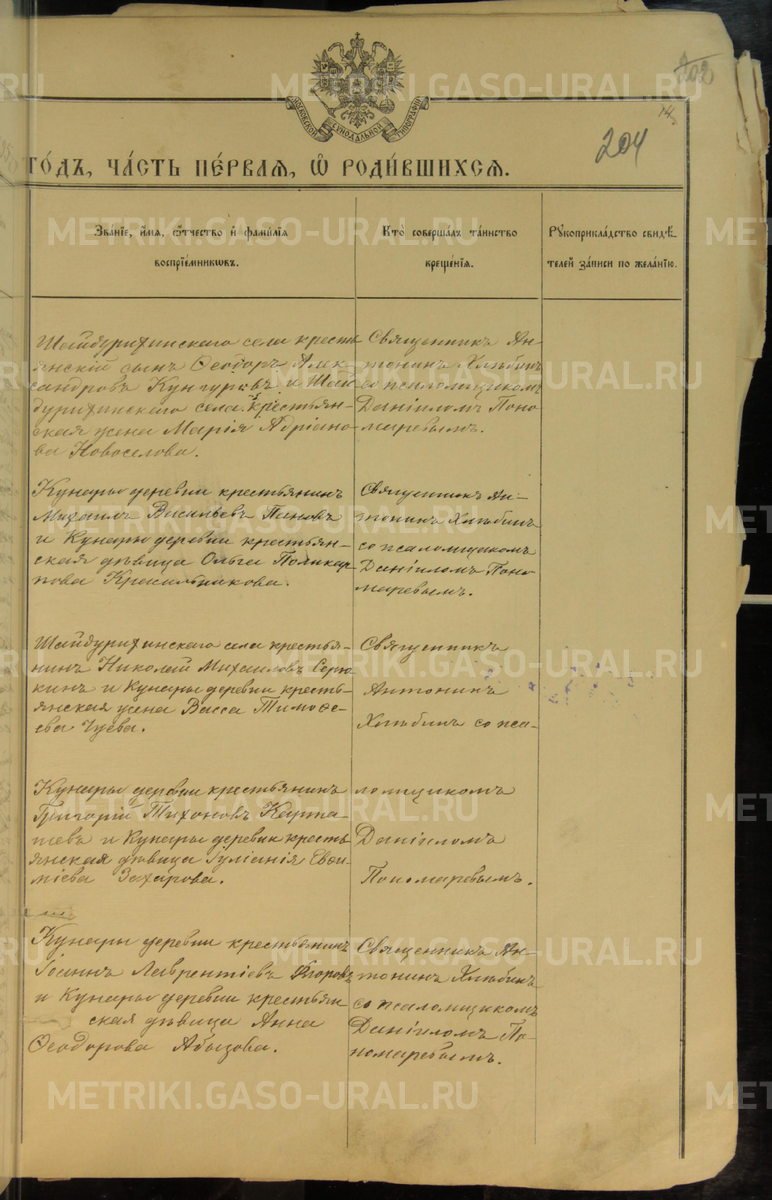 202
14
204
МОСКОВСКОЙ СѴНОДАЛЬНОЙ ТИПОГРАФІИ
ГО́ДЪ, ЧА́СТЬ ПЕ́РВАЯ, Ѡ҆ РОДИ́ВШИХСЯ.
Зва́нїе, и҆́мя, ѻ҆́тчество и҆ фамі́лїя
воспрїе́мникѡвъ.
Кто̀ соверша́лъ та́инство
креще́нїя.
Рꙋкоприкла́дство свидѣ́-
телей за́писи по жела́нїю.
Шайдурихинскаго села кресть
янскій сынъ Ѳеодоръ Алек
сандровъ Кунгуровъ и Шай
дурихинскаго села крестьян-
ская жена Марія Адріано-
ва Новоселова.
Священникъ Ан-
тонинъ Хлѣбинъ
со псаломщикомъ
Даніиломъ Поно
маревымъ.
Кунары деревни крестьянинъ
Михаилъ Васильевъ Пановъ
и Кунары деревни крестьян-
ская дѣвица Ольга Поликар
пова Красильникова.
Священникъ Ан-
тонинъ Хлѣбинъ
со псаломщикомъ
Даніиломъ Поно
маревымъ.
Шайдурихинскаго села крестья-
нинъ Николай Михаиловъ Сорю
кинъ и Кунары деревни кресть-
янская жена Васса Тимоѳе-
ева Чуева.
Священникъ
Антонинъ
Хлѣбинъ со пса-
Кунары деревни крестьянинъ
Григорій Тихоновъ Карта-
шевъ и Кунары деревни кресть
янская дѣвица Іуліанія Евѳи
міева Захарова.
ломщикомъ
Даніиломъ
Пономаревымъ.
Кунары деревни крестьянинъ
Іоаннъ Лаврентіевъ Егоровъ
и Кунары деревни крестьян
ская дѣвица Анна
Ѳеодорова Абызова.
Священникъ Ан-
тонинъ Хлѣбинъ
со псаломщикомъ
Даніиломъ По-
номаревымъ.
METRIKI.GASO-URAL.RU